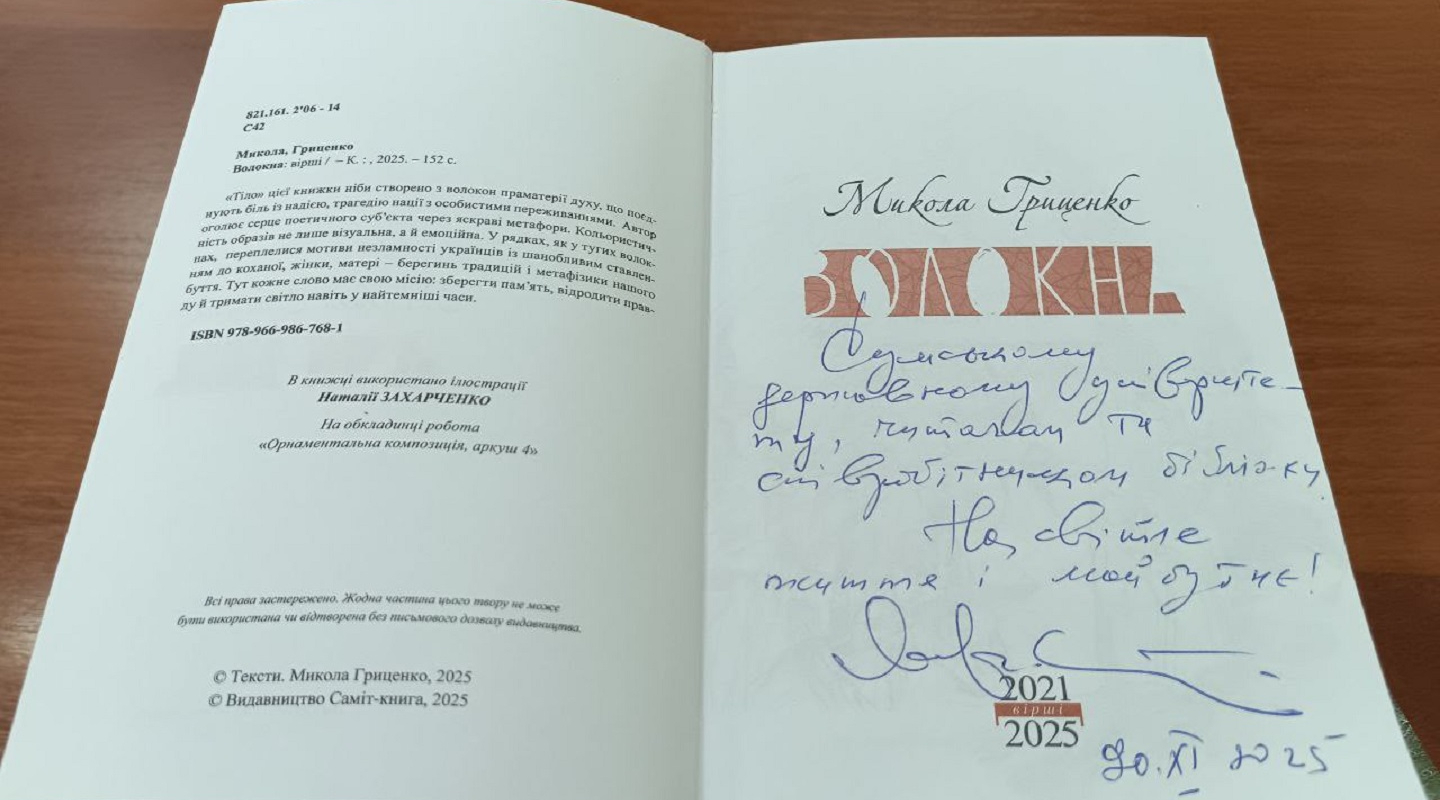 821.161. 2'06 - 14
С42
Микола, Гриценко
Волокна: вірші / – К. : , 2025. – 152 с.
«Тіло» цієї книжки ніби створено з волокон праматерії духу, що поєд-
нують біль із надією, трагедію нації з особистими переживаннями. Автор
оголює серце поетичного суб’єкта через яскраві метафори. Кольористич-
ність образів не лише візуальна, а й емоційна. У рядках, як у тугих волок-
нах, переплелися мотиви незламності українців із шанобливим ставлен-
ням до коханої, жінки, матері – берегинь традицій і метафізики нашого
буття. Тут кожне слово має свою місію: зберегти пам’ять, відродити прав-
ду й тримати світло навіть у найтемніші часи.
ISBN 978-966-986-768-1
В книжці використано ілюстрації
Наталії ЗАХАРЧЕНКО
На обкладинці робота
«Орнаментальна композиція, аркуш 4»
Всі права застережено. Жодна частина цього твору не може
бути використана чи відтворена без письмового дозволу видавництва.
© Тексти. Микола Гриценко, 2025
© Видавництво Саміт-книга, 2025
Микола Гриценко
ВОЛОКНА
Сумському
державному університе-
ту, читачам та
співробітникам
На світле
життя і майбутнє!
2021
вірші
2025
20.XI 2025